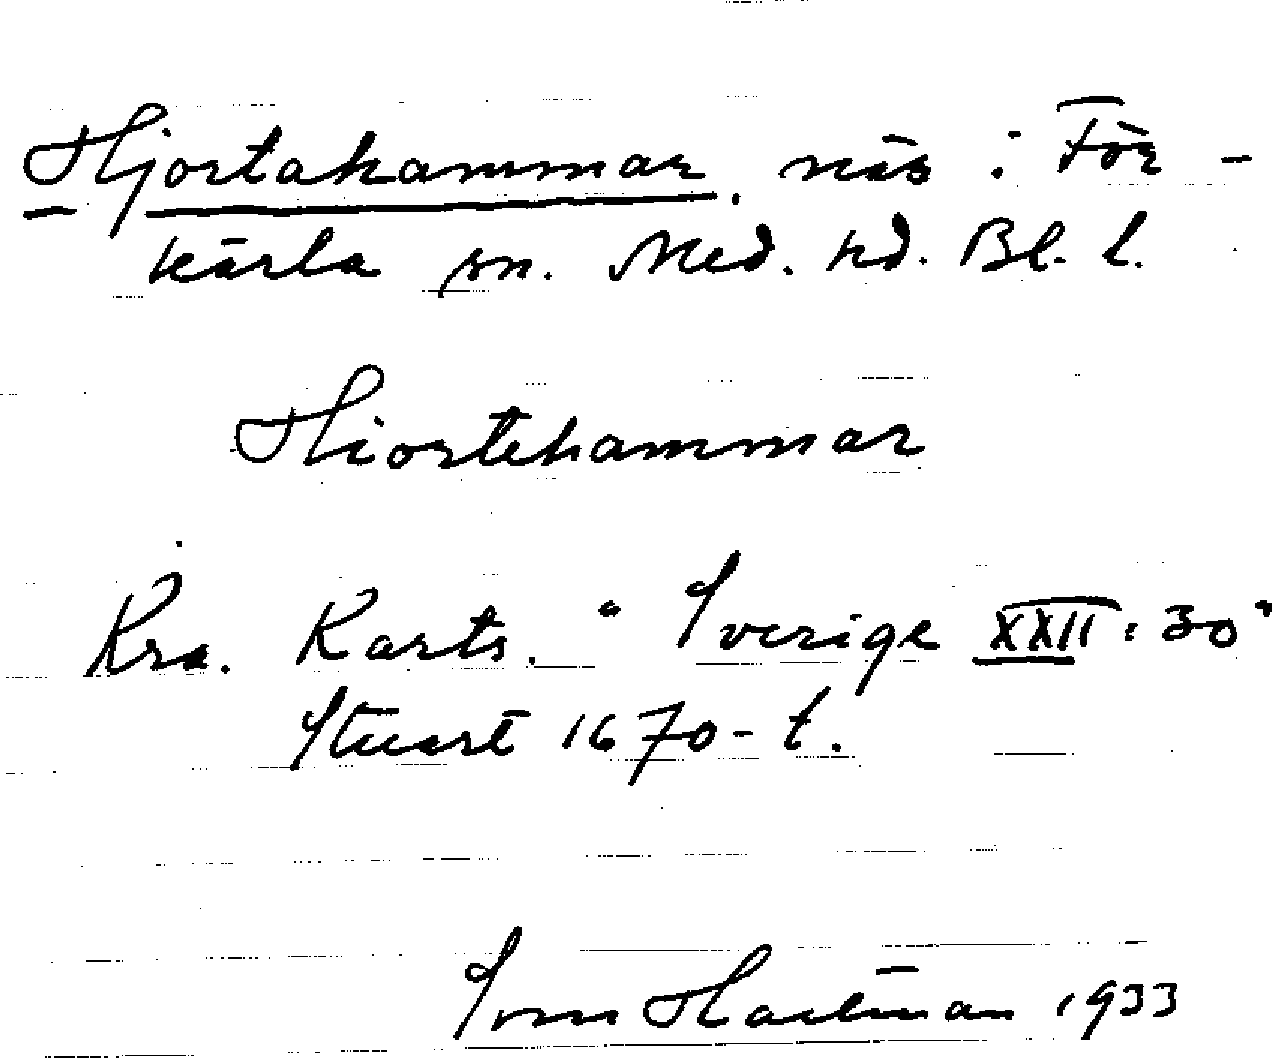 Hjortahammar, näs i För-
kärla sn. Med. hd. Bl. l.
Hiortehammar
Kra. Karts. "Sverige XXII:30"
Stuart 1670-t.
Sven Hartman 1933